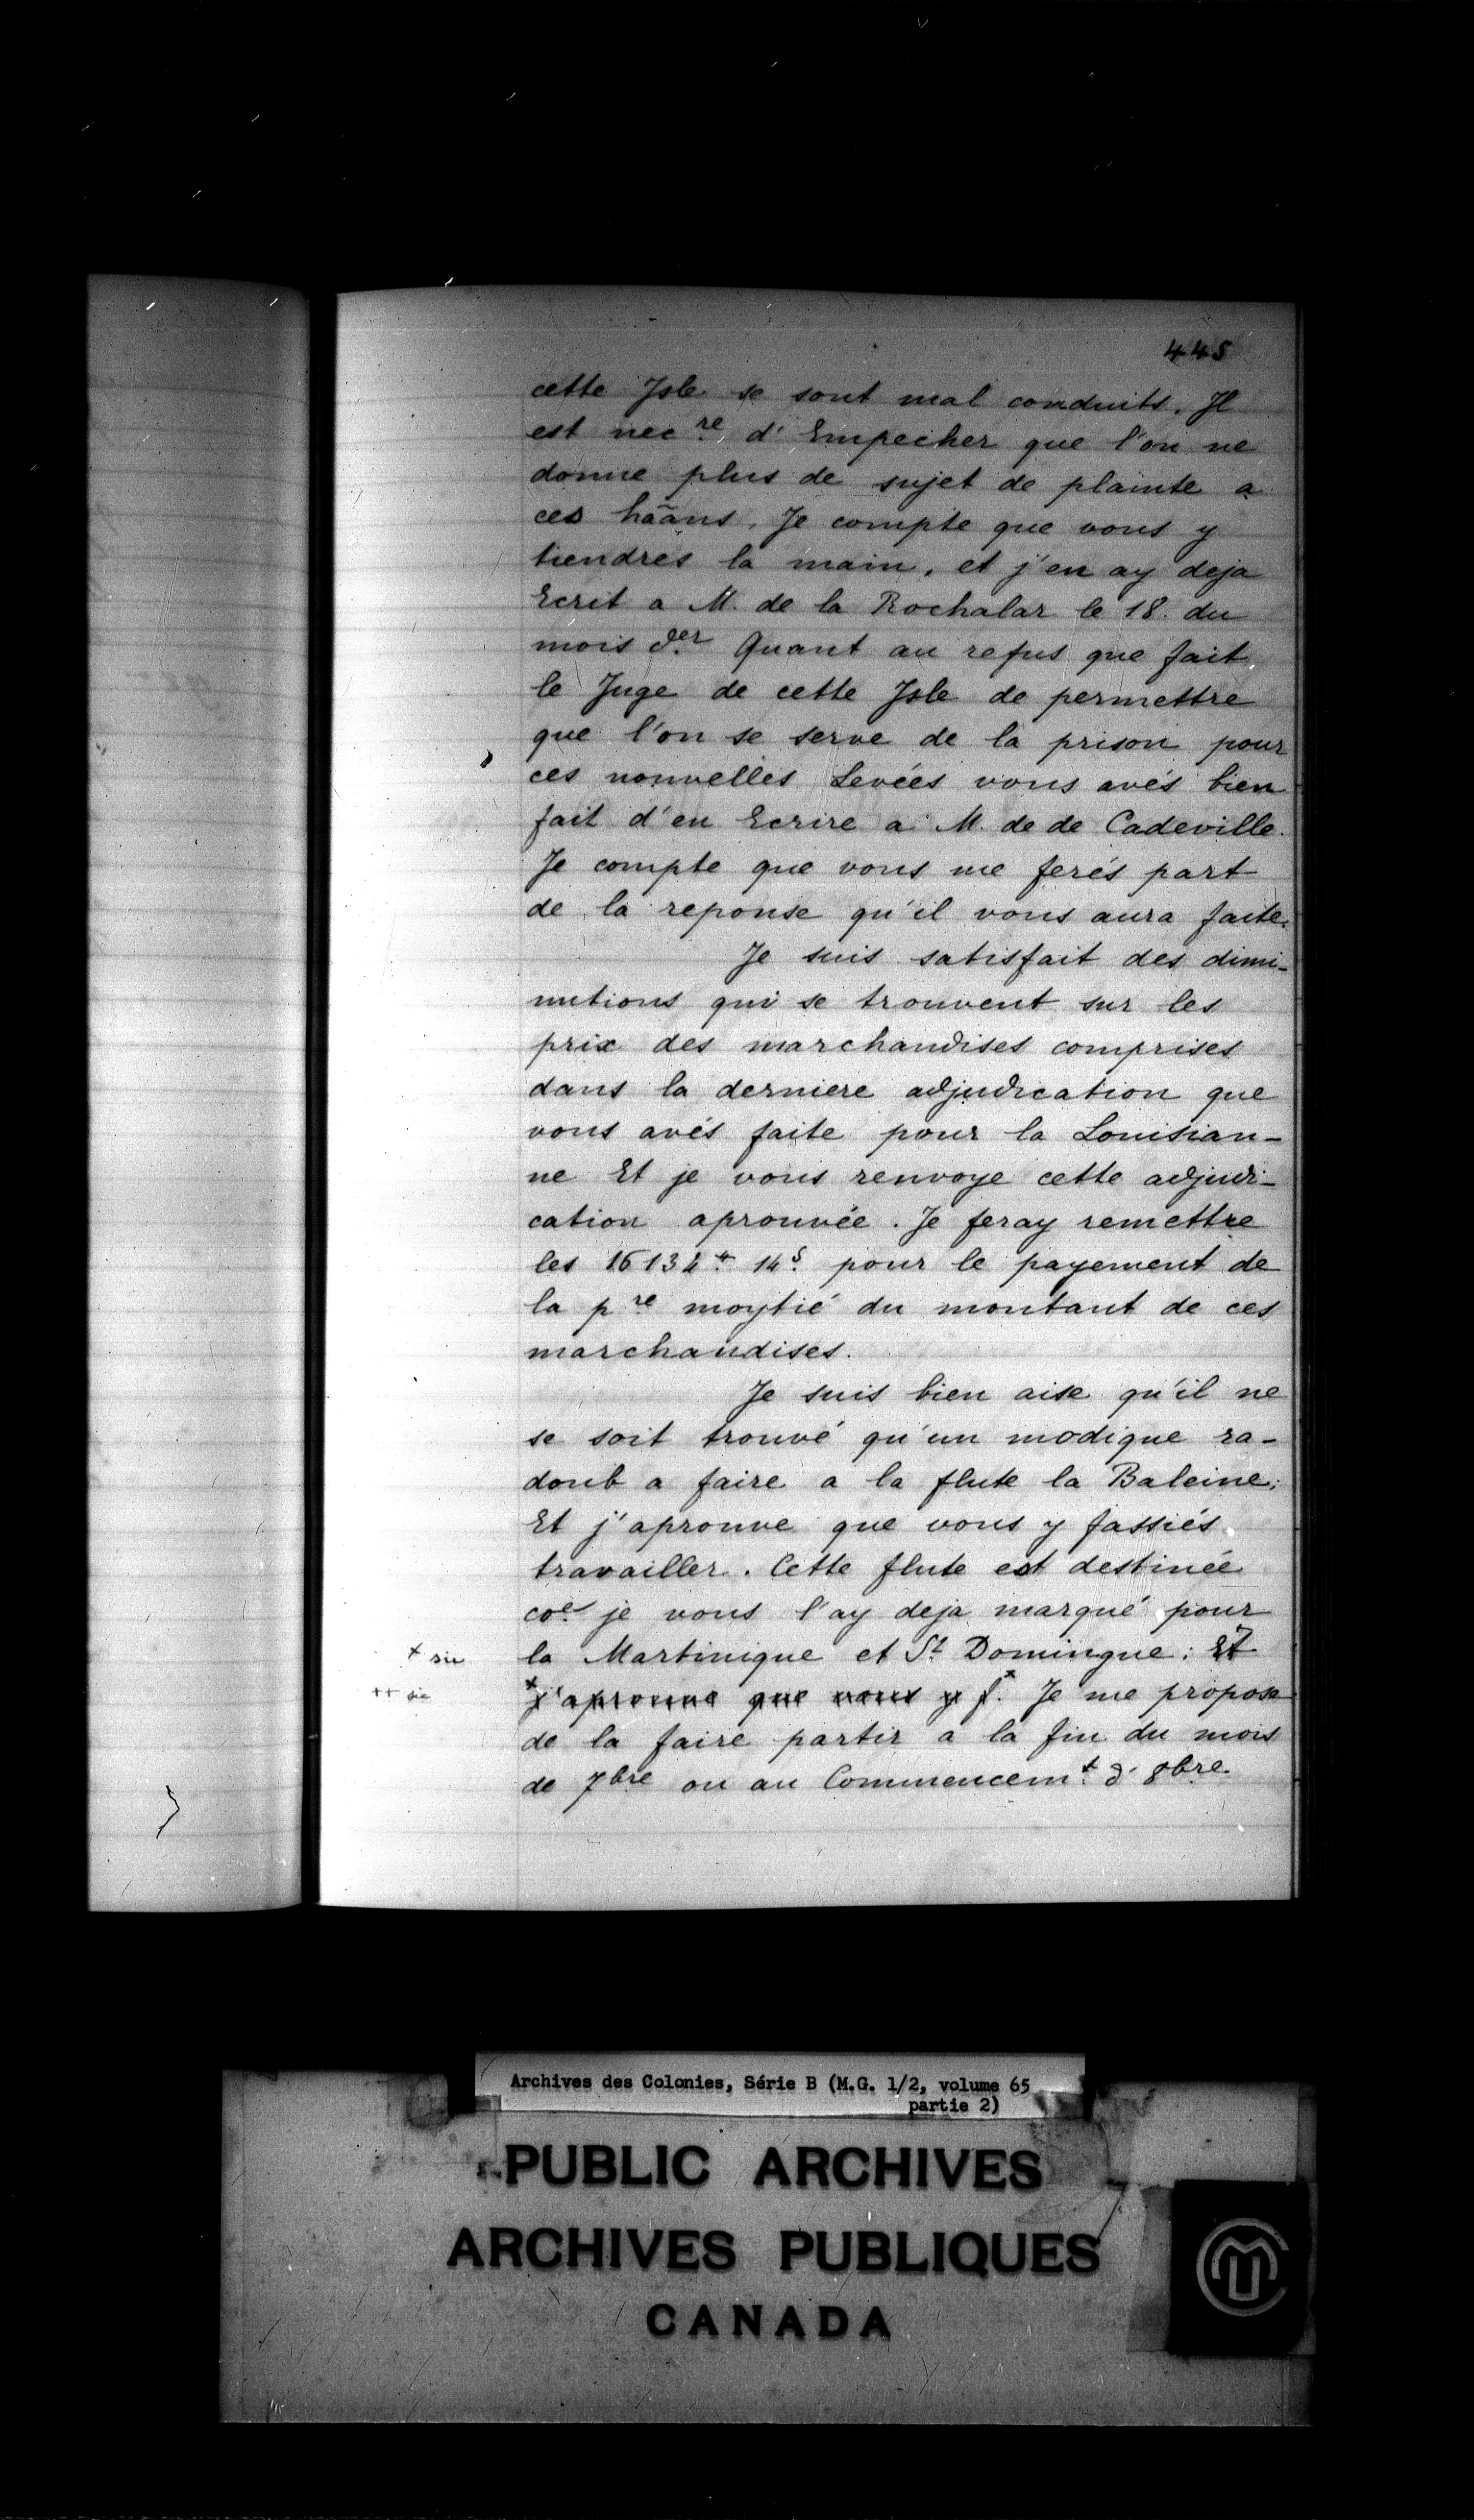 445
cette Isle se sont mal conduits. Il
est nec.re d'Empecher que l'on ne
donne plus de sujet de plainte a
ces hãans. Je compte que vous y
tiendres la main, et j'en ay deja
Ecrit a M. de la Rochalar le 18. du
mois der Quant au refus que fait
le Juge de cette Isle de permettre
que l'on se serve de la prison pour
ces nouvelles Levées vous avés bien
fait d'en Ecrire a M. de de Cadeville.
Je compte que vous me ferés part
de la reponse qu'il vous aura faite.
Je suis satisfait des dimi-
nutions qui se trouvent sur les
prix des marchandises comprises
dans la derniere adjudication que
vous avés faite pour la Louisian-
ne Et je vous renvoye cette adjudi-
cation aprouvée. Je feray remettre
les 14s pour le payement de
la pre moytié du montant de ces
marchandises.
Je suis bien aise qu'il ne
se soit trouvé qu'un modique ra-
doub a faire a la flute la Baleine;
Et j'aprouve que vous y fassiés
travailler. Cette flute est destinée
coe je vous l'ay deja marqué pour
+ sic la Martinique et St Domingue; Et
++ sic j'aprouve que vous y f. Je me propose
de la faire partir a la fin du mois
de 7bre ou au Commencemt d'8bre
Archives des Colonies, Série B (M.G. 1/2, volume 65
partie 2)
PUBLIC ARCHIVES
ARCHIVES PUBLIQUES
CANADA